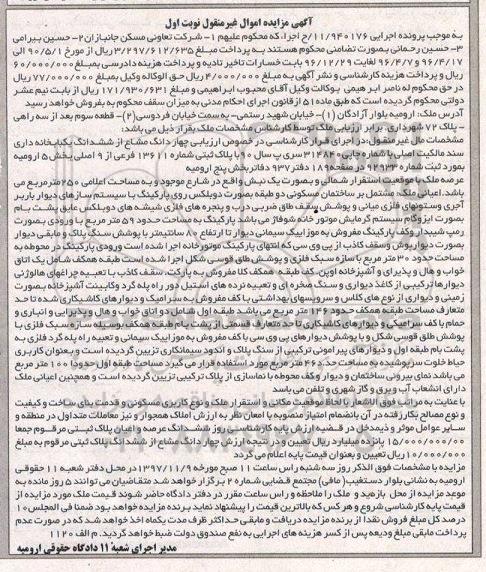 آگهی مزایده اموال غیرمنقول نوبت اول
به موجب پرونده اجرایی 11/940176/ح اجرا، که محکوم علیهم 1- شرکت تعاونی مسکن جانبازان 2- حسین بیرامی
3- حسین رحمانی بصورت تضامنی محکوم هستند به پرداخت مبلغ 3/297/612/635 ریال از مورخ 90/5/1 الی
96/4/17 و 96/4/17 لغایت 96/12/29 بابت خسارات تاخیر تادیه و پرداخت هزینه دادرسی بمبلغ 60/000/000
ریال و پرداخت هزینه کارشناسی و نشر آگهی به مبلغ 4/000/000 ریال حق الوکاله وکیل بمبلغ 77/000/000 ریال
در حق محکوم له ناصر ابراهیمی بوکالت وکیل آقای محبوب ابراهیمی و مبلغ 171/930/631 ریال از بابت نیم عشر
دولتی محکوم گردیده است که طبق ماده 51 از قانون اجرای احکام مدنی به میزان سقف محکوم به بفروش خواهد رسید
آدرس ملک: ارومیه بلوار آزادگان (1)- خیابان شهید رستمی- به سمت خیابان فردوسی (2)- قطعه سوم بعد از سه راهی
- پلاک 72 شهرداری. برابر ارزیابی ملک توسط کارشناس مشخصات ملک بقرار ذیل می باشد:
مشخصات مال غیرمنقول: در اجرای قرار کارشناسی در خصوص ارزیابی چهار دانگ مشاع از ششدانگ یکبابخانه دارای
سند مالکیت اصلی با شماره چاپی 314840 سری پ سال 90 با پلاک ثبتی شماره 13611 فرعی از 9 اصلی بخش 5 ارومیه
بمورد ثبت شماره 92933 در صفحه 189 دفتر 937 دفاتر بخش پنج ارومیه
عرصه ملک با موقعیت استقرار شمالی و بصورت یک نبش واقع در شارع موجود و به مساحت اعلامی 250 مترمربع می
باشد. اعیانی ملک مشتمل بر ساختمان مسکونی دو طبقه بصورت دوبلکس روی پارکینگ با سیستم سازه های دیوار باربر
آجری وستونهای فلزی میانی و پوشش سقف طاق ضربی درب و پنجره های فلزی شیشه های دوبلکس عایق پشت بام
بصورت ایزوگام سیستم گرمایش موتور خانه شوفاژ می باشد پارکینگ به مساحت حدود 59 متر مربع با ورودی بصورت
رمپ شیبدار وکف پارکینگ مفروش به موزاییک سیمانی دیوار تا ارتفاع 80 سانتیمتر با پوشش سنگ پلاک و مابقی دیوار
بصورت دیوارپوش وسقف کاذب از پی وی سی که انتهای پارکینگ موتورخانه اجرا شده است ورودی پارکینگ در محوطه به
مساحت حدود 30 متر مربع با سازه سبک فلزی و پوشش طلق قوسی شکل اجرا شده است طبقه همکف شامل یک اتاق
خواب و هال و پذیرائی و آشپزخانه اوپن کف طبقه همکف کلا مفروش به پارکت، سقف کاذب با تعبیه چراغهای هالوژنی
دیوارها ترکیبی از کاغذ دیواری و سنگ صخره ای و تعبیه نرده های استیل دور راه پله گرد وکابینت آشپزخانه بصورت
زمینی و دیواری از نوع های گلاس و سرویسهای بهداشتی با کف مفروش به سرامیک و دیوارهای کاشیکاری شده تا حد
متعارف مساحت طبقه همکف حدود 146 متر مربع می باشد طبقه اول شامل دو اتاق خواب و هال و پذیرایی و انباری و
حمام با کف سرامیکی و دیوارهای کاشیکاری تا حد متعارف قسمتی از پشت بام طبقه همکف بوسیله سازه سبک فلزی با
پوشش طلق قوسی شکل و با پوشش دیوارهای پی وی سی با کف مفروش به موزاییک سیمانی و تعبیه راه پله گرد فلزی به
پشت بام طبقه اول و دیوارهای پیرامونی ترکیبی از سنگ پلاک و اندود سیمانکاری تزیین گردیده است و بعنوان کاربری
حیاط خلوت سرپوشیده به مساحت حدود 46 متر مربع مورد استفاده قرار می گیرد مساحت طبقه اول حدوداً 100 متر مربع
می باشد نمای بیرونی ساختمان و دیوار وکف محوطه با نماسازی از پلاک ترکیبی تزیین گردیده است و همچنین اعیانی ملک
دارای انشعاب آب و برق و گاز شهری و تلفن می باشد
با عنایت به مراتب فوق الاشعار با لحاظ موقعیت مکانی و استقرار ملک و نوع کاربری مسکونی و قدمت بنای ساخت و کیفیت
و نوع مصالح بکار رفته در آن بانضمام امتیاز منصوبه با امعان نظر به ارزش املاک همجوار و نیز معاملات متداول در منطقه و
سایر عوامل موثر و ذیمدخل در قضیه ارزش پایه کارشناسی روز ششدانگ عرصه و اعیان پلاک ثبتی مرقوم جمعا
15/000/000/000 پانزده میلیارد ریال تعیین و در نتیجه ارزش چهار دانگ مشاع از ششدانگ پلاک ثبتی مرقوم به مبلغ
10/000/000/000 ریال تعیین و بعنوان قیمت پایه اعلام می گردد
مزایده با مشخصات فوق الذکر روز سه شنبه راس ساعت 11 صبح مورخه 1397/11/9 در محل دفتر شعبه 11 حقوقی
ارومیه به نشانی بلوار دستغیب (مافی) مجتمع قضایی شماره 2 برگزار خواهد شد متقاضیان می توانند 5 روز مانده به
موعد مزایده از محل بازدید و ملک را ملاحظه و راس ساعت مقرر در دفتر دادگاه حاضر شوند قیمت ملک مورد مزایده از
قیمت پایه کارشناسی شروع و هر کس که بالاترین قیمت را پیشنهاد نماید برنده مزایده خواهد بود ضمنا فی المجلس 10
درصد کل مبلغ فروش نقدا از برنده مزایده دریافت و مابقی حداکثر ظرف مدت یکماه اخذ خواهد شد که در صورت عدم
پرداخت مابقی مبلغ ودیعه پس از کسر هزینه های اجرایی به نفع صندوق دولت ضبط خواهد گردید. م الف 1120
مدیر اجرای شعبه 11 دادگاه حقوقی ارومیه